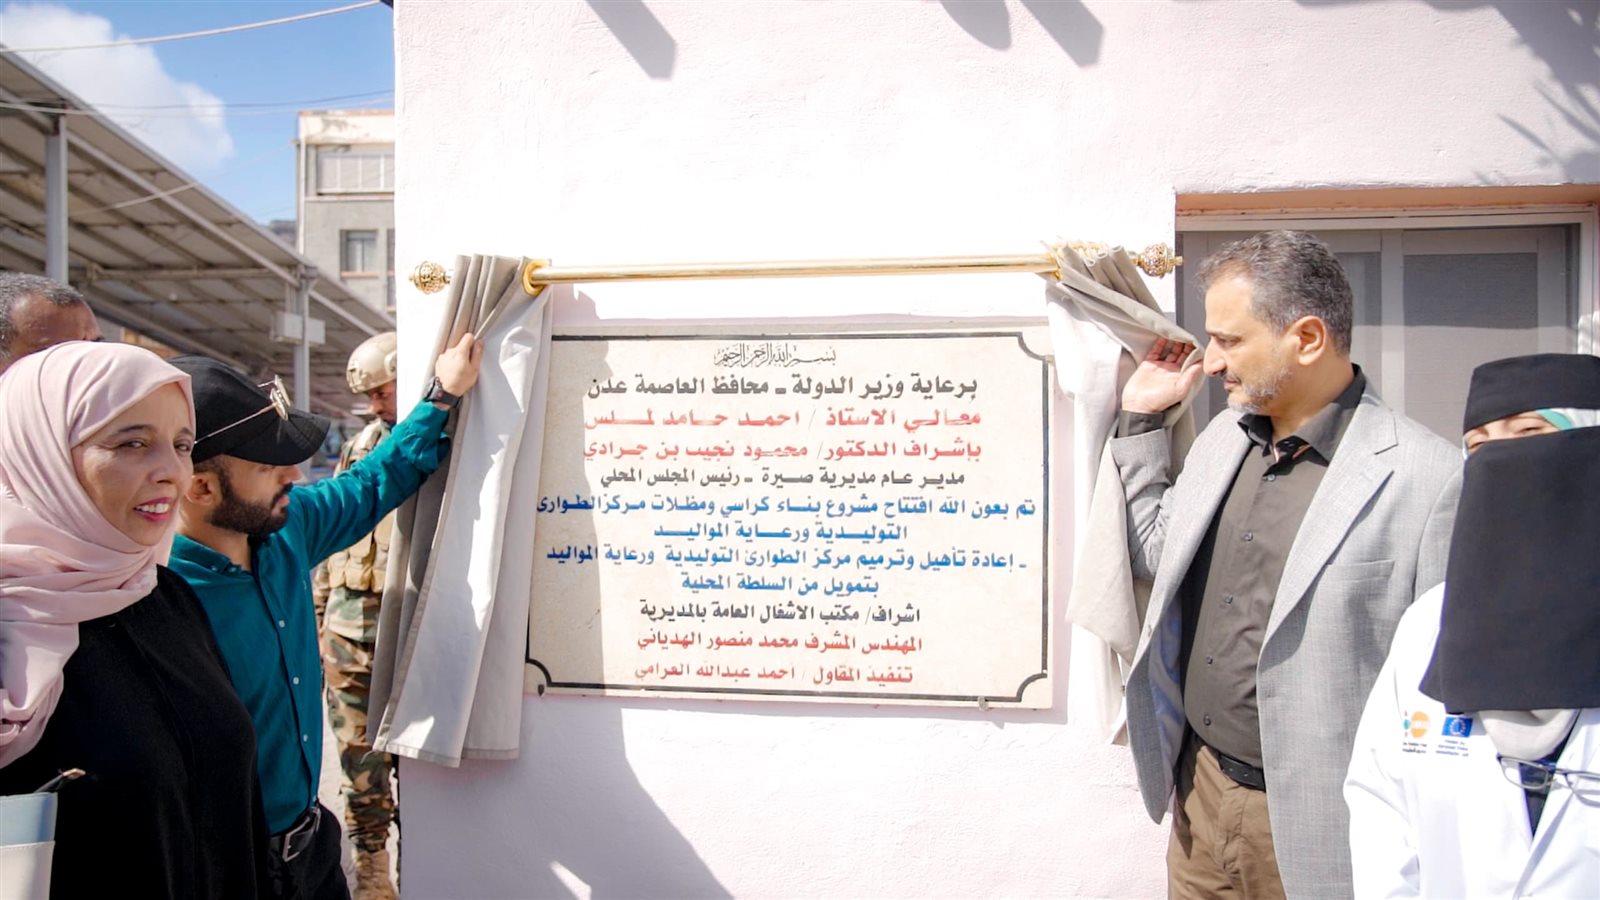 بسم الله الرحمن الرحيم
برعاية وزير الدولة - محافظ العاصمة عدن
معالي الاستاذ / احمد حامد لملس
بإشراف الدكتور/ محمود نجيب بن جرادي
مدير عام مديرية صيرة - رئيس المجلس المحلي
تم بعون الله افتتاح مشروع بناء كراسي ومظلات مركز الطوارئ
التوليدية ورعاية المواليد
- إعادة تأهيل وترميم مركز الطوارئ التوليدية ورعاية المواليد
بتمويل من السلطة المحلية
اشراف/ مكتب الاشغال العامة بالمديرية
المهندس المشرف محمد منصور الهدياني
تنفيذ المقاول / احمد عبدالله العرامي